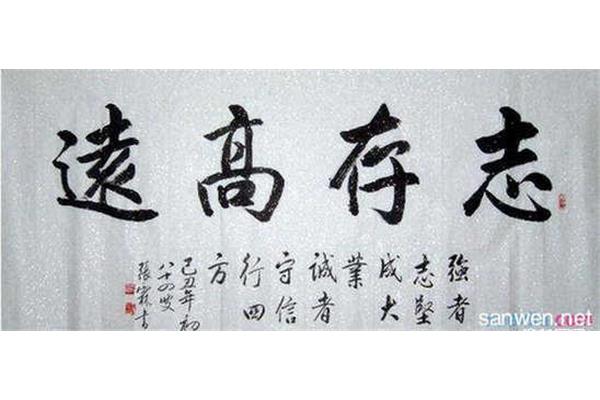 志存高遠
強者
志堅
成大
業
誠者
守信
行四
方
己丑年初
八十四叟
張霖书
sanwen.net